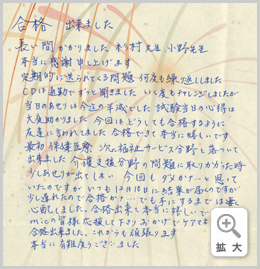 合格 出来ました
長い間かかりました 木村先生 小野先生
本当に感謝申し上げます
定期的に送られてくる問題 何度も練返しました
CDは通勤でずっと聞きました いく度もチャレンジしましたが
当日のあせりは今迄の半減でした 試験当日の心得は
大変助かりました 今回はどうしても合格するように
友達に言われてました 合格できて本当に嬉しいです
最初保健医療 次に福祉サービス分野と落ちついて
出来ました 介護支援分野の問題に取りかかった時
少しあせりが出てしまい 今回もダメかナーと思って
いたのですが いつも12月10日に結果が届くのですが
少し遅れたので合格か?…でも手にするまでは
心配しました。合格出来て本当に嬉しいです
の皆様 応援して下さり おかげでケアマネ
合格出来ました。これからも頑張ります
本当に有難度うございました
拡大